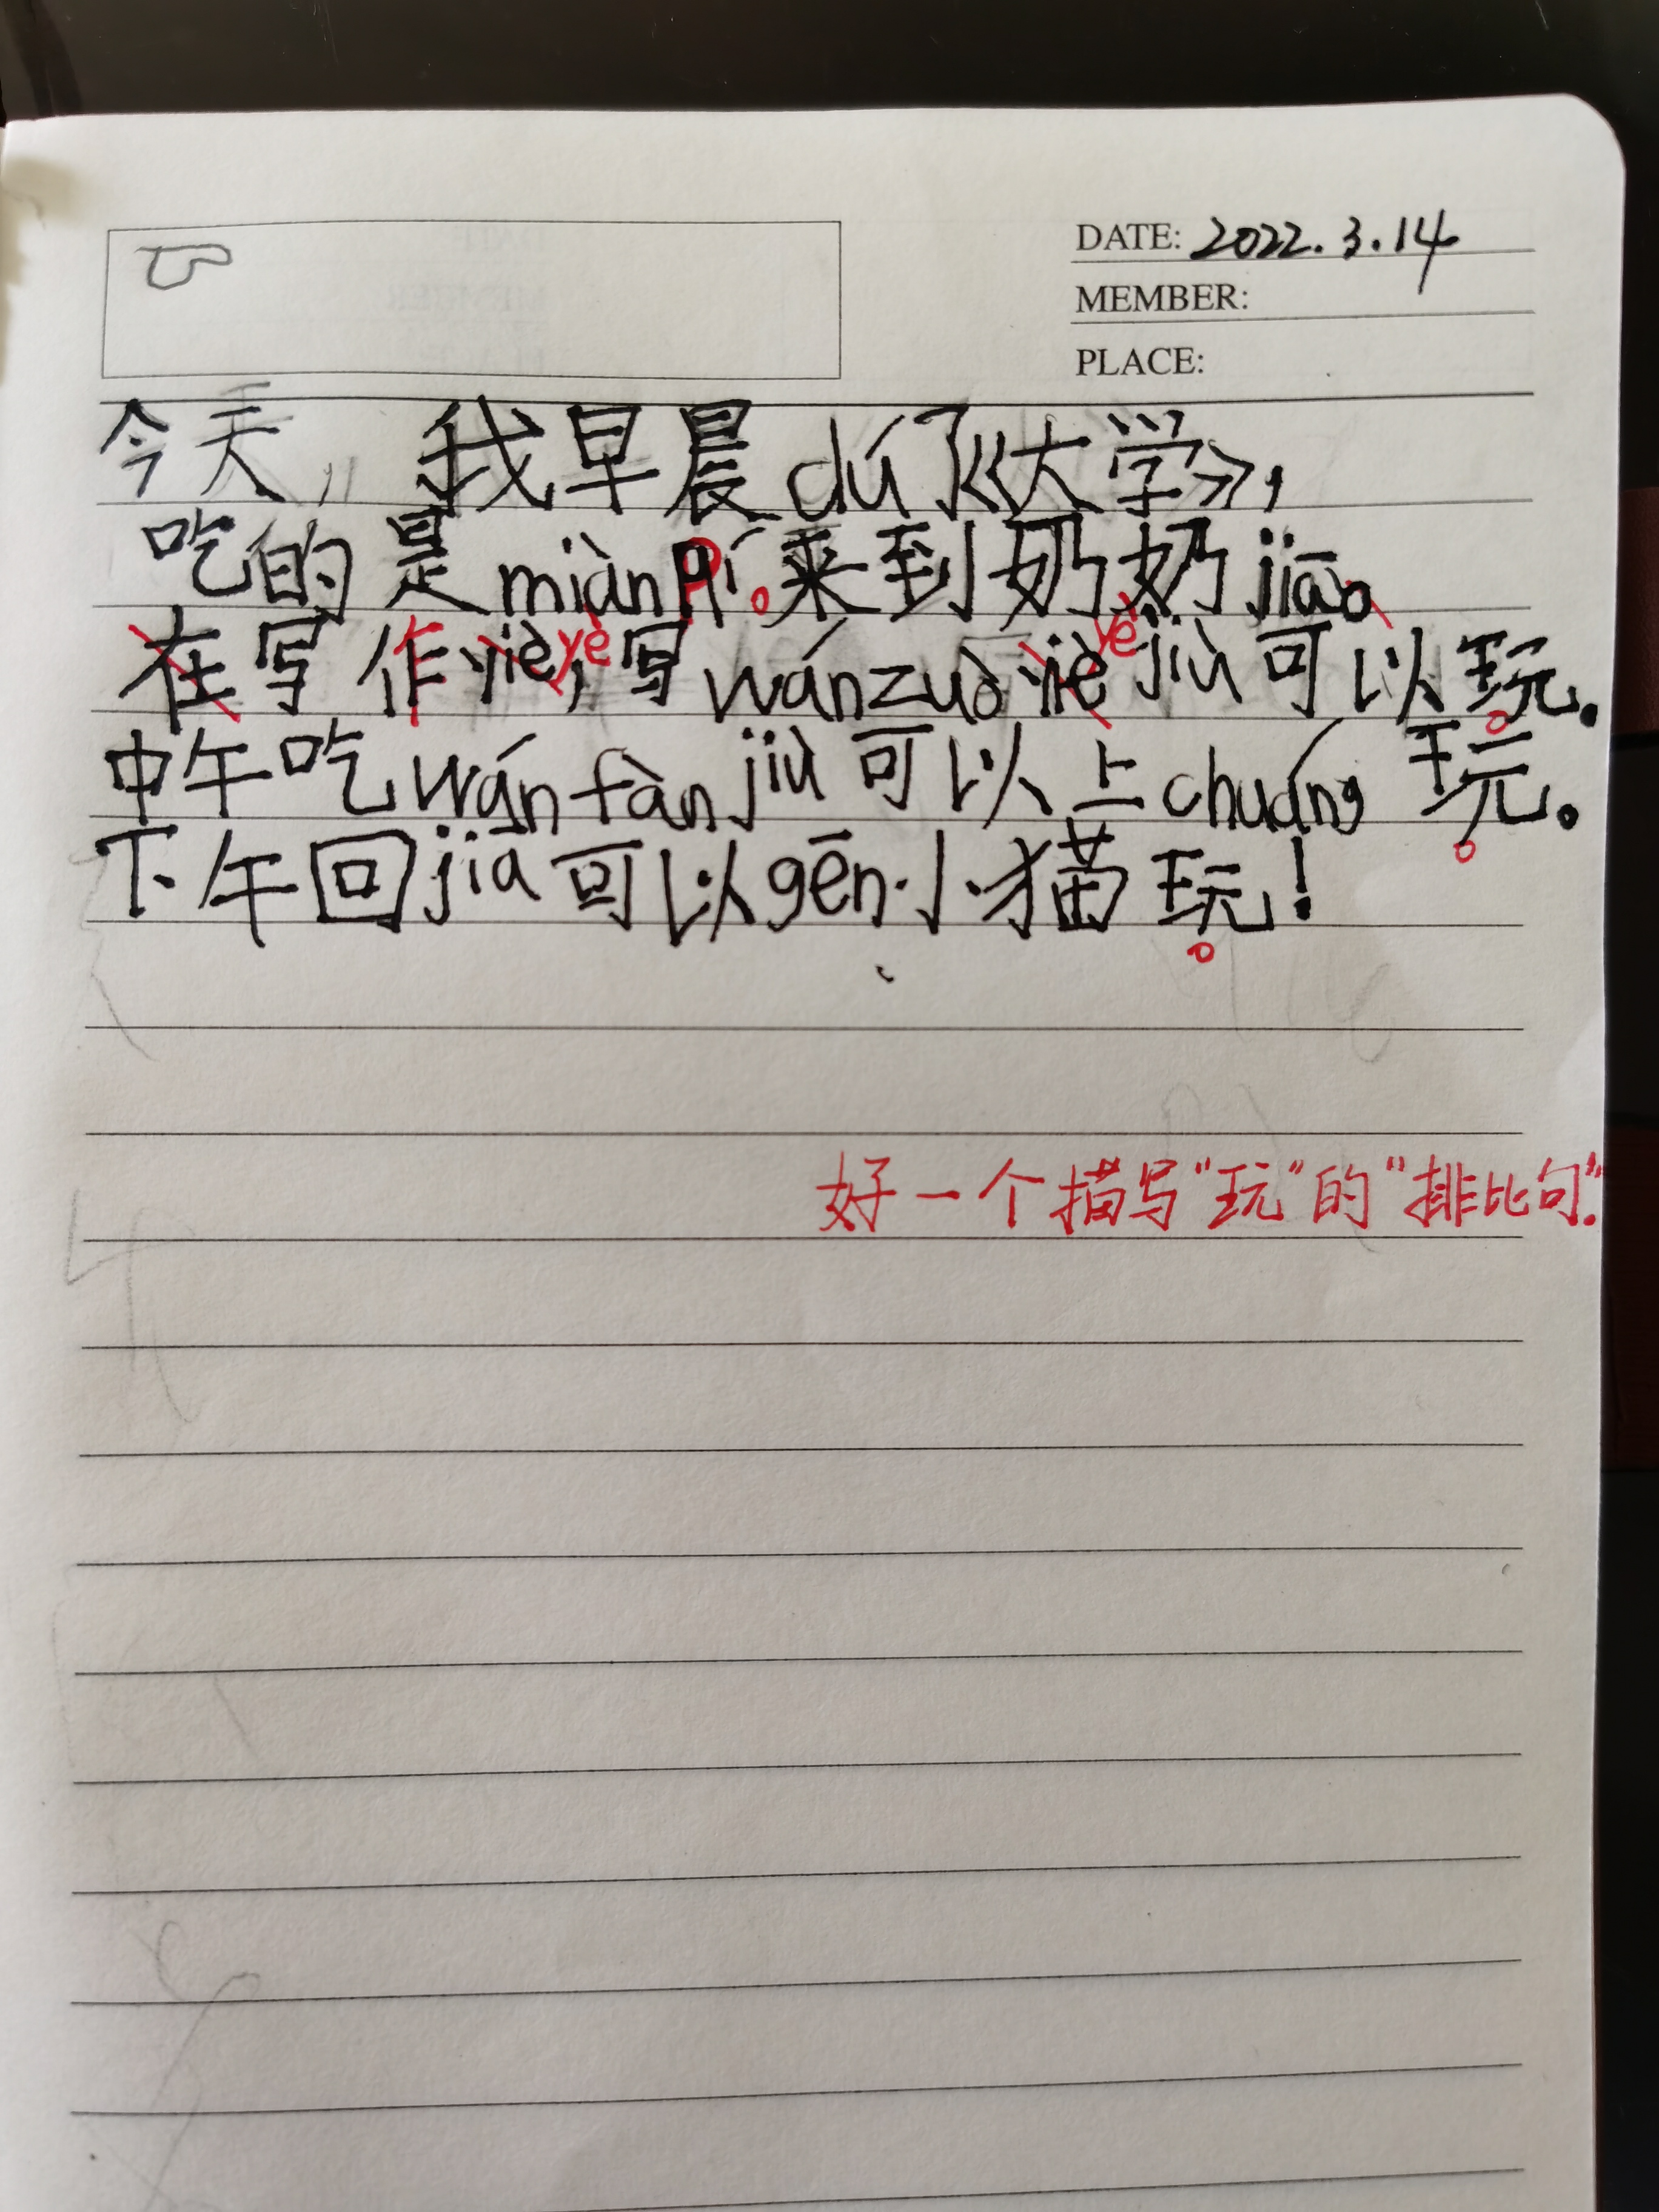 DATE: 2022.3.14
MEMBER:
PLACE:
今天，我早晨dú了《大学》，
吃的是miànpí。来到奶奶jiāo
在写作yiè yè，写wánzuòyiè yè jiù可以玩。
中午吃wánfànjiù可以上chuáng玩。
下午回jiā可以gēn小猫玩！
好一个描写“玩”的“排比句”.